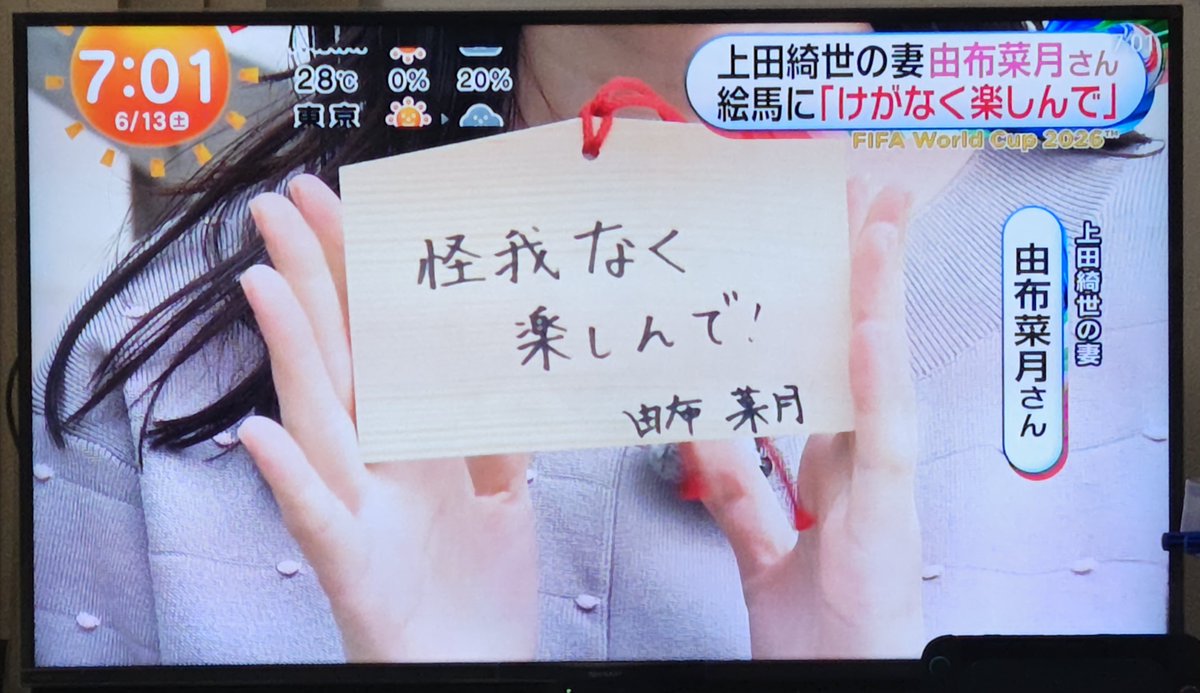 7:01
6/13土
28℃ 0% 20%
東京
上田綺世の妻 由布菜月さん
絵馬に「けがなく楽しんで」
FIFA World Cup 2026™
怪我なく
楽しんで!
由布 菜月
上田綺世の妻
由布菜月さん
SHARP